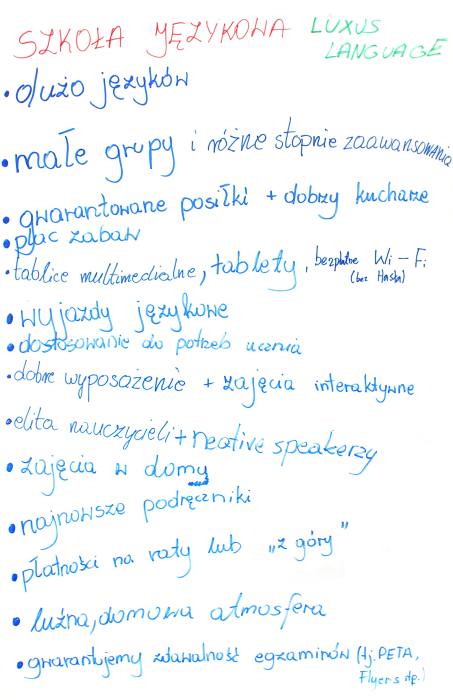 SZKOŁA JĘZYKOWA LUXUS LANGUAGE
• dużo języków
• małe grupy i różne stopnie zaawansowania
• gwarantowane posiłki + dobrzy kucharze
• plac zabaw
• tablice multimedialne, tablety, bezpłatne Wi-Fi (bez Hasła)
• wyjazdy językowe
• dostosowanie do potrzeb ucznia
• dobre wyposażenie + zajęcia interaktywne
• elita nauczycieli + neative speakerzy
• zajęcia w domu
• najnowsze podręczniki
• płatności na raty lub „z góry"
• luźna, domowa atmosfera
• gwarantujemy zdawalność egzaminów (tj. PETA, Flyers itp.)